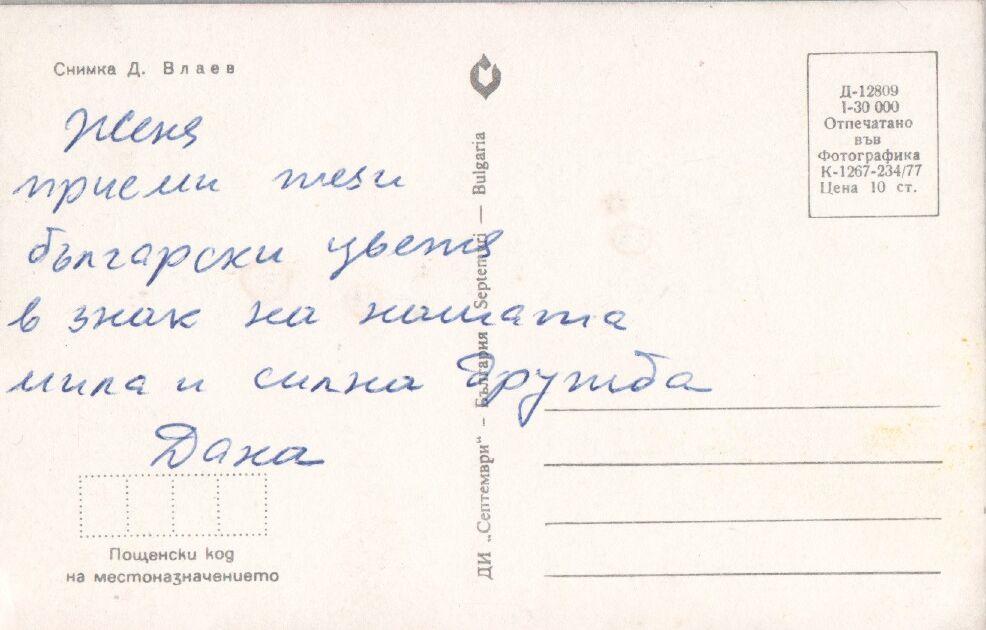 Снимка Д. Влаев
Женя
приеми тези
български цветя
в знак на нашата
мила и силна дружба
Дана
Пощенски код
на местоназначението
ДИ „Септември“ – България / Septemvri — Bulgaria
Д-12809
I-30 000
Отпечатано
във
Фотографика
К-1267-234/77
Цена 10 ст.